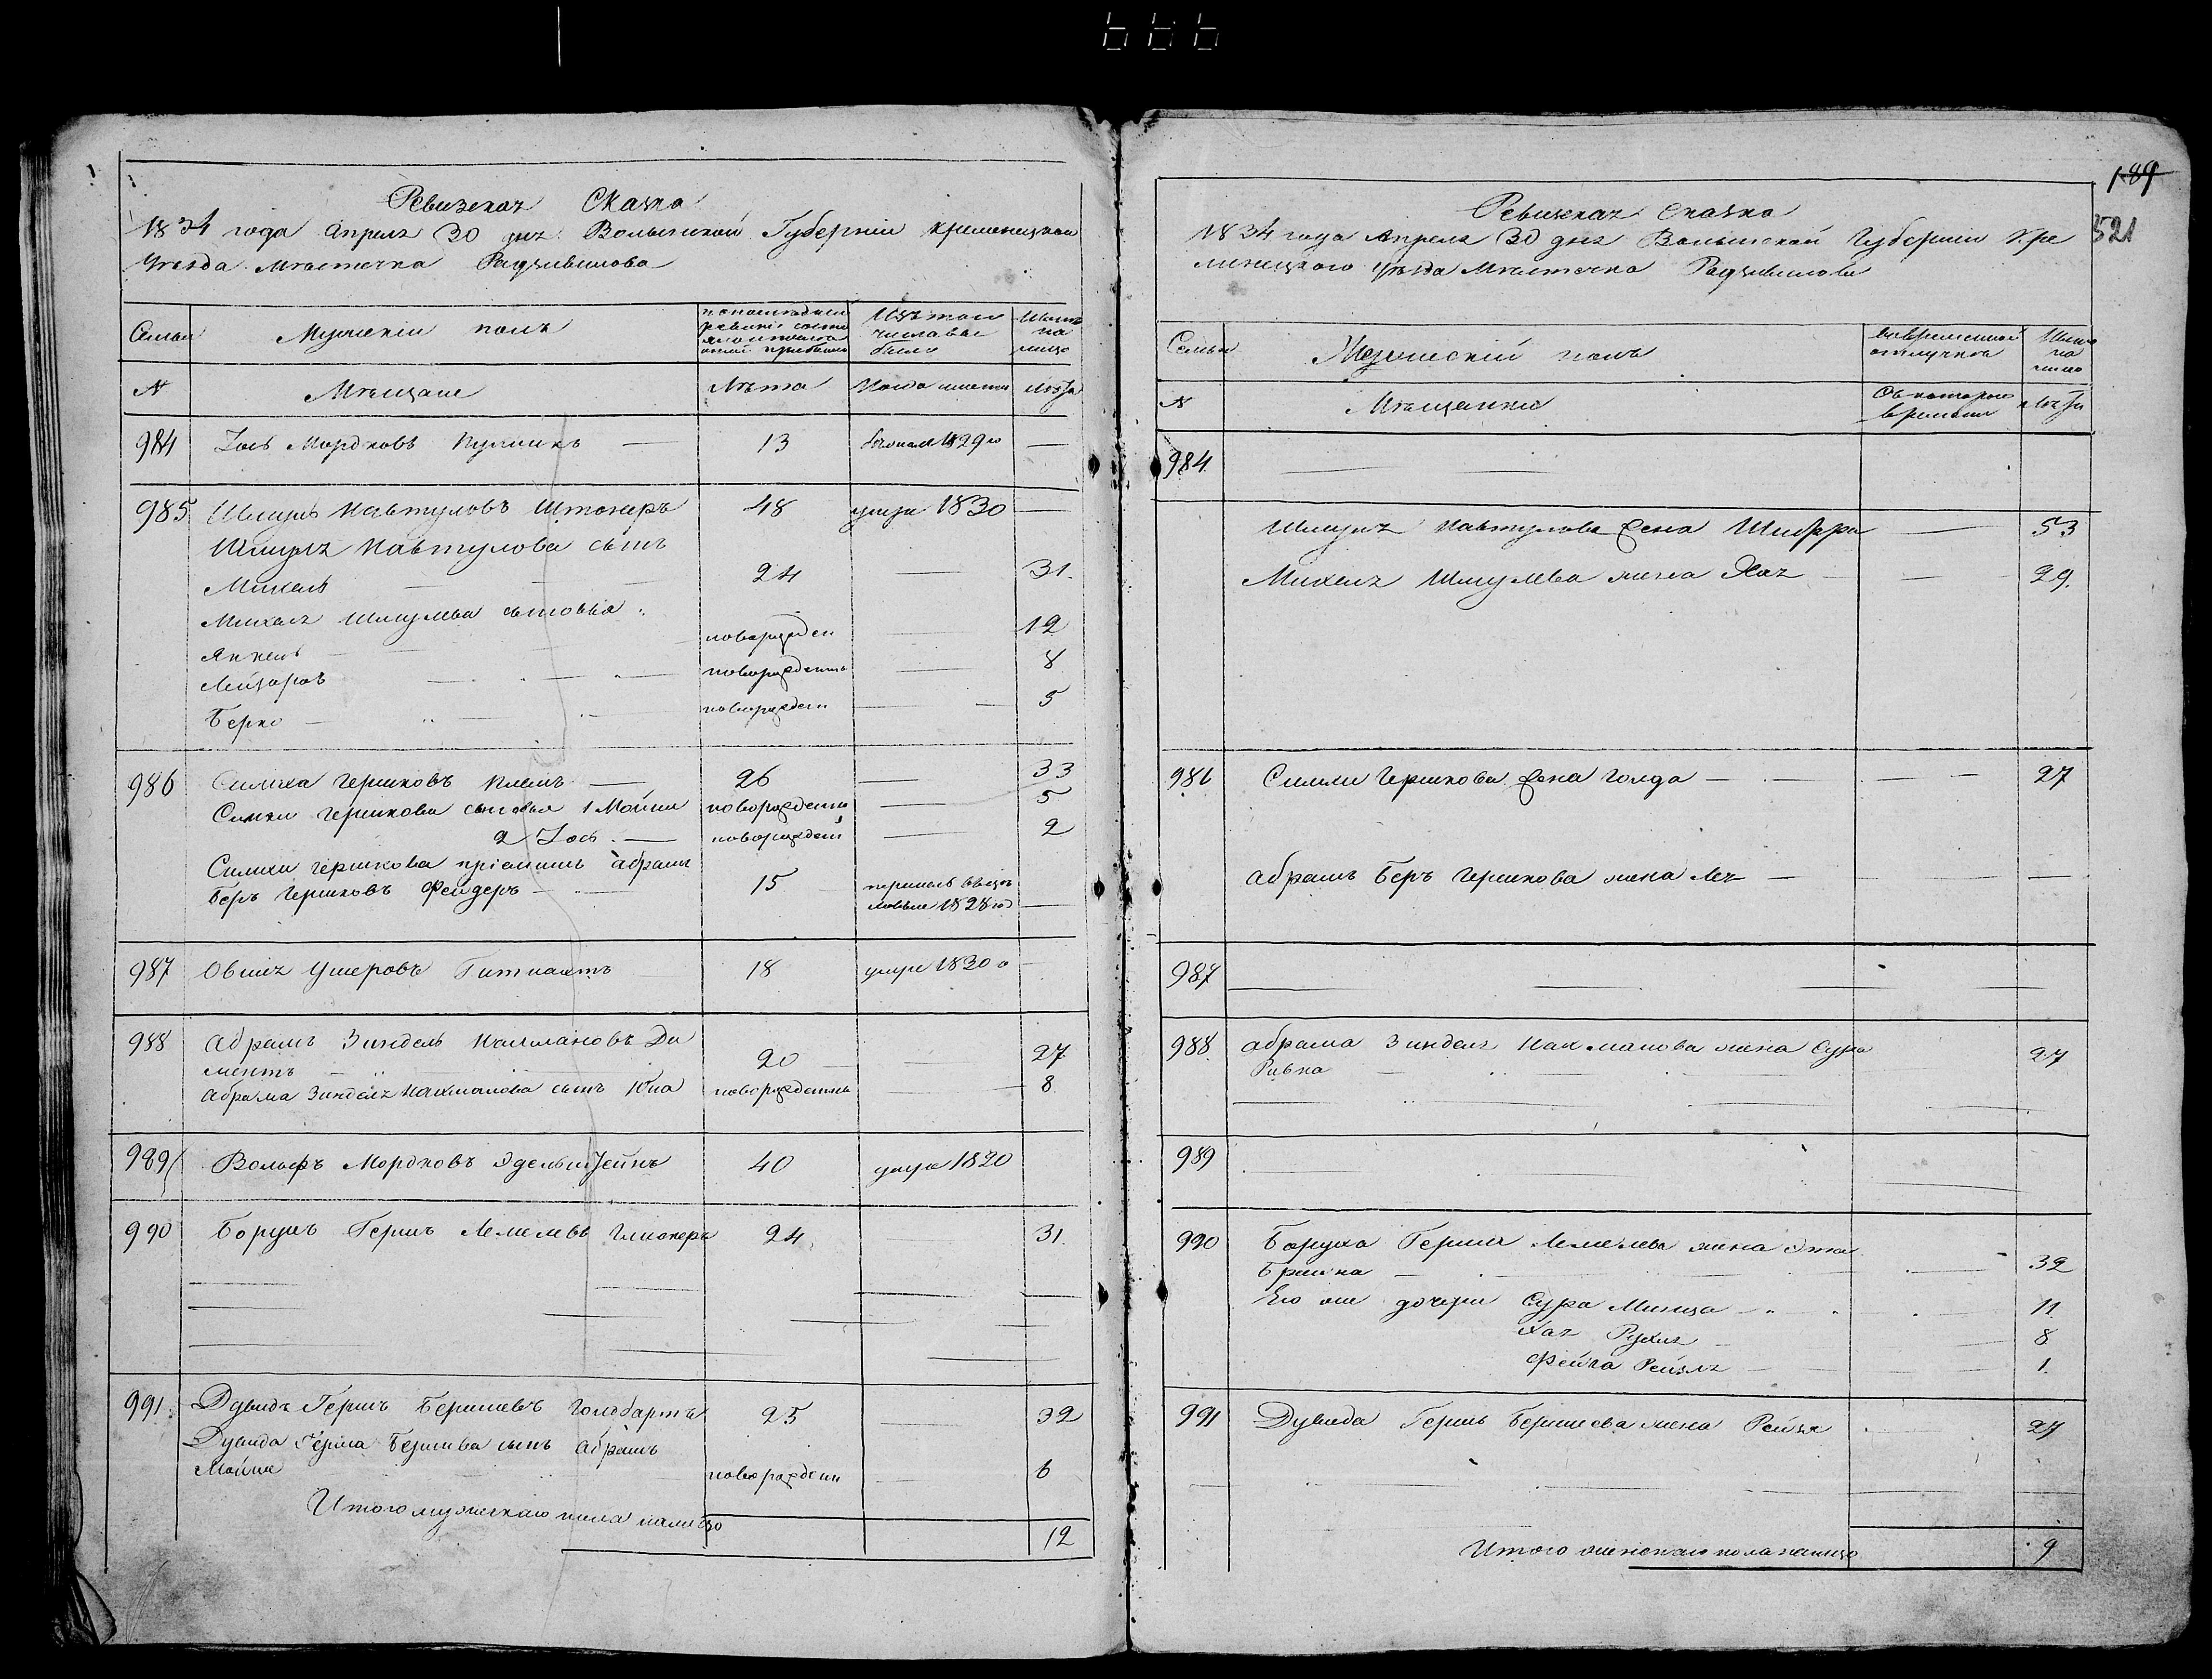 Ревизская Сказка
1834 года Апреля 30 дня Волынской Губерніи Кременецкаго
Уѣзда Мѣстечка Радзивилова
Семьи Мужескій полъ Изъ того числа выбыло
№ Мѣщане Лѣта Когда именно Лѣта
984 Іось Мордковъ 13 1829го —
985 Шмуль Навтуловъ Штокеръ 48 умре 1830 —
Шмуля Навтулова сынъ
Михель 24 — 31.
Михеля Шмулева сыновья
Янкель новорожден — 12
Лейзоръ новорожденъ — 8
Берко — новорожден — 5
986 Симха Гершковъ — 26 — 33
Симхи Гершкова сыновья 1 Мошко новорожденъ — 5
2 Іось — новорожден — 2
Симхи Гершкова пріемышъ Абрамъ
Беръ Гершковъ Фейдеръ — 15 1828 год —
987 Овшія Ушеровъ 18 умре 1830 —
988 Абрамъ Зиндель Нахмановъ Ди
ментъ 20 — 27
Абрама Зинделя Нахманова сынъ Юна новорожденъ — 8
989 Вольфъ Мордковъ Эдельштейнъ 40 умре 1820
990 Борухъ Гершъ Лемелевъ 24 — 31.
991. Дувидъ Гершъ Бершевъ Голдбартъ 25 — 32
Дувида Герша Бершева сынъ Абрамъ
Мошко новорожден — 6
Итого мужескаго пола налицо 12
189
521
Ревизская Сказка
1834 года Апреля 30 дня Волынской Губерніи Кре
менецкого Уѣзда Мѣстечка Радзивилова
Семьи полъ Во временной отлучкѣ
№ Мѣщанки Съ котораго времени Лѣта
984
Шмуля Навтулова жена Шифра — 53
Михеля Шмулева жена Хая — 29.
986 Симхи Гершкова жена Голда — 27
Абрамъ Беръ Гершкова жена Лея — —
987
988 Абрама Зинделя Нахманова жена Сура
Ривка 27
989
990 Боруха Герша Лемелева жена Эта
Брайна — 32
Его же дочери Сура Минца — 11
Хая Рухля — 8
Фейга Рейзля — 1.
991 Дувида Гершъ Бершева жена Рейзя 27
Итого женскаго пола налицо 9